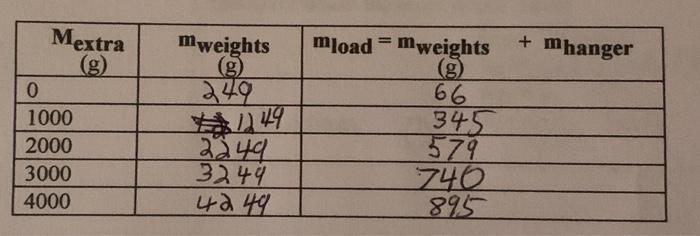 Mextra mweights mload = mweights + mhanger
(g) (g) (g)
0 249 66
1000 1249 345
2000 2249 579
3000 3249 740
4000 4249 895